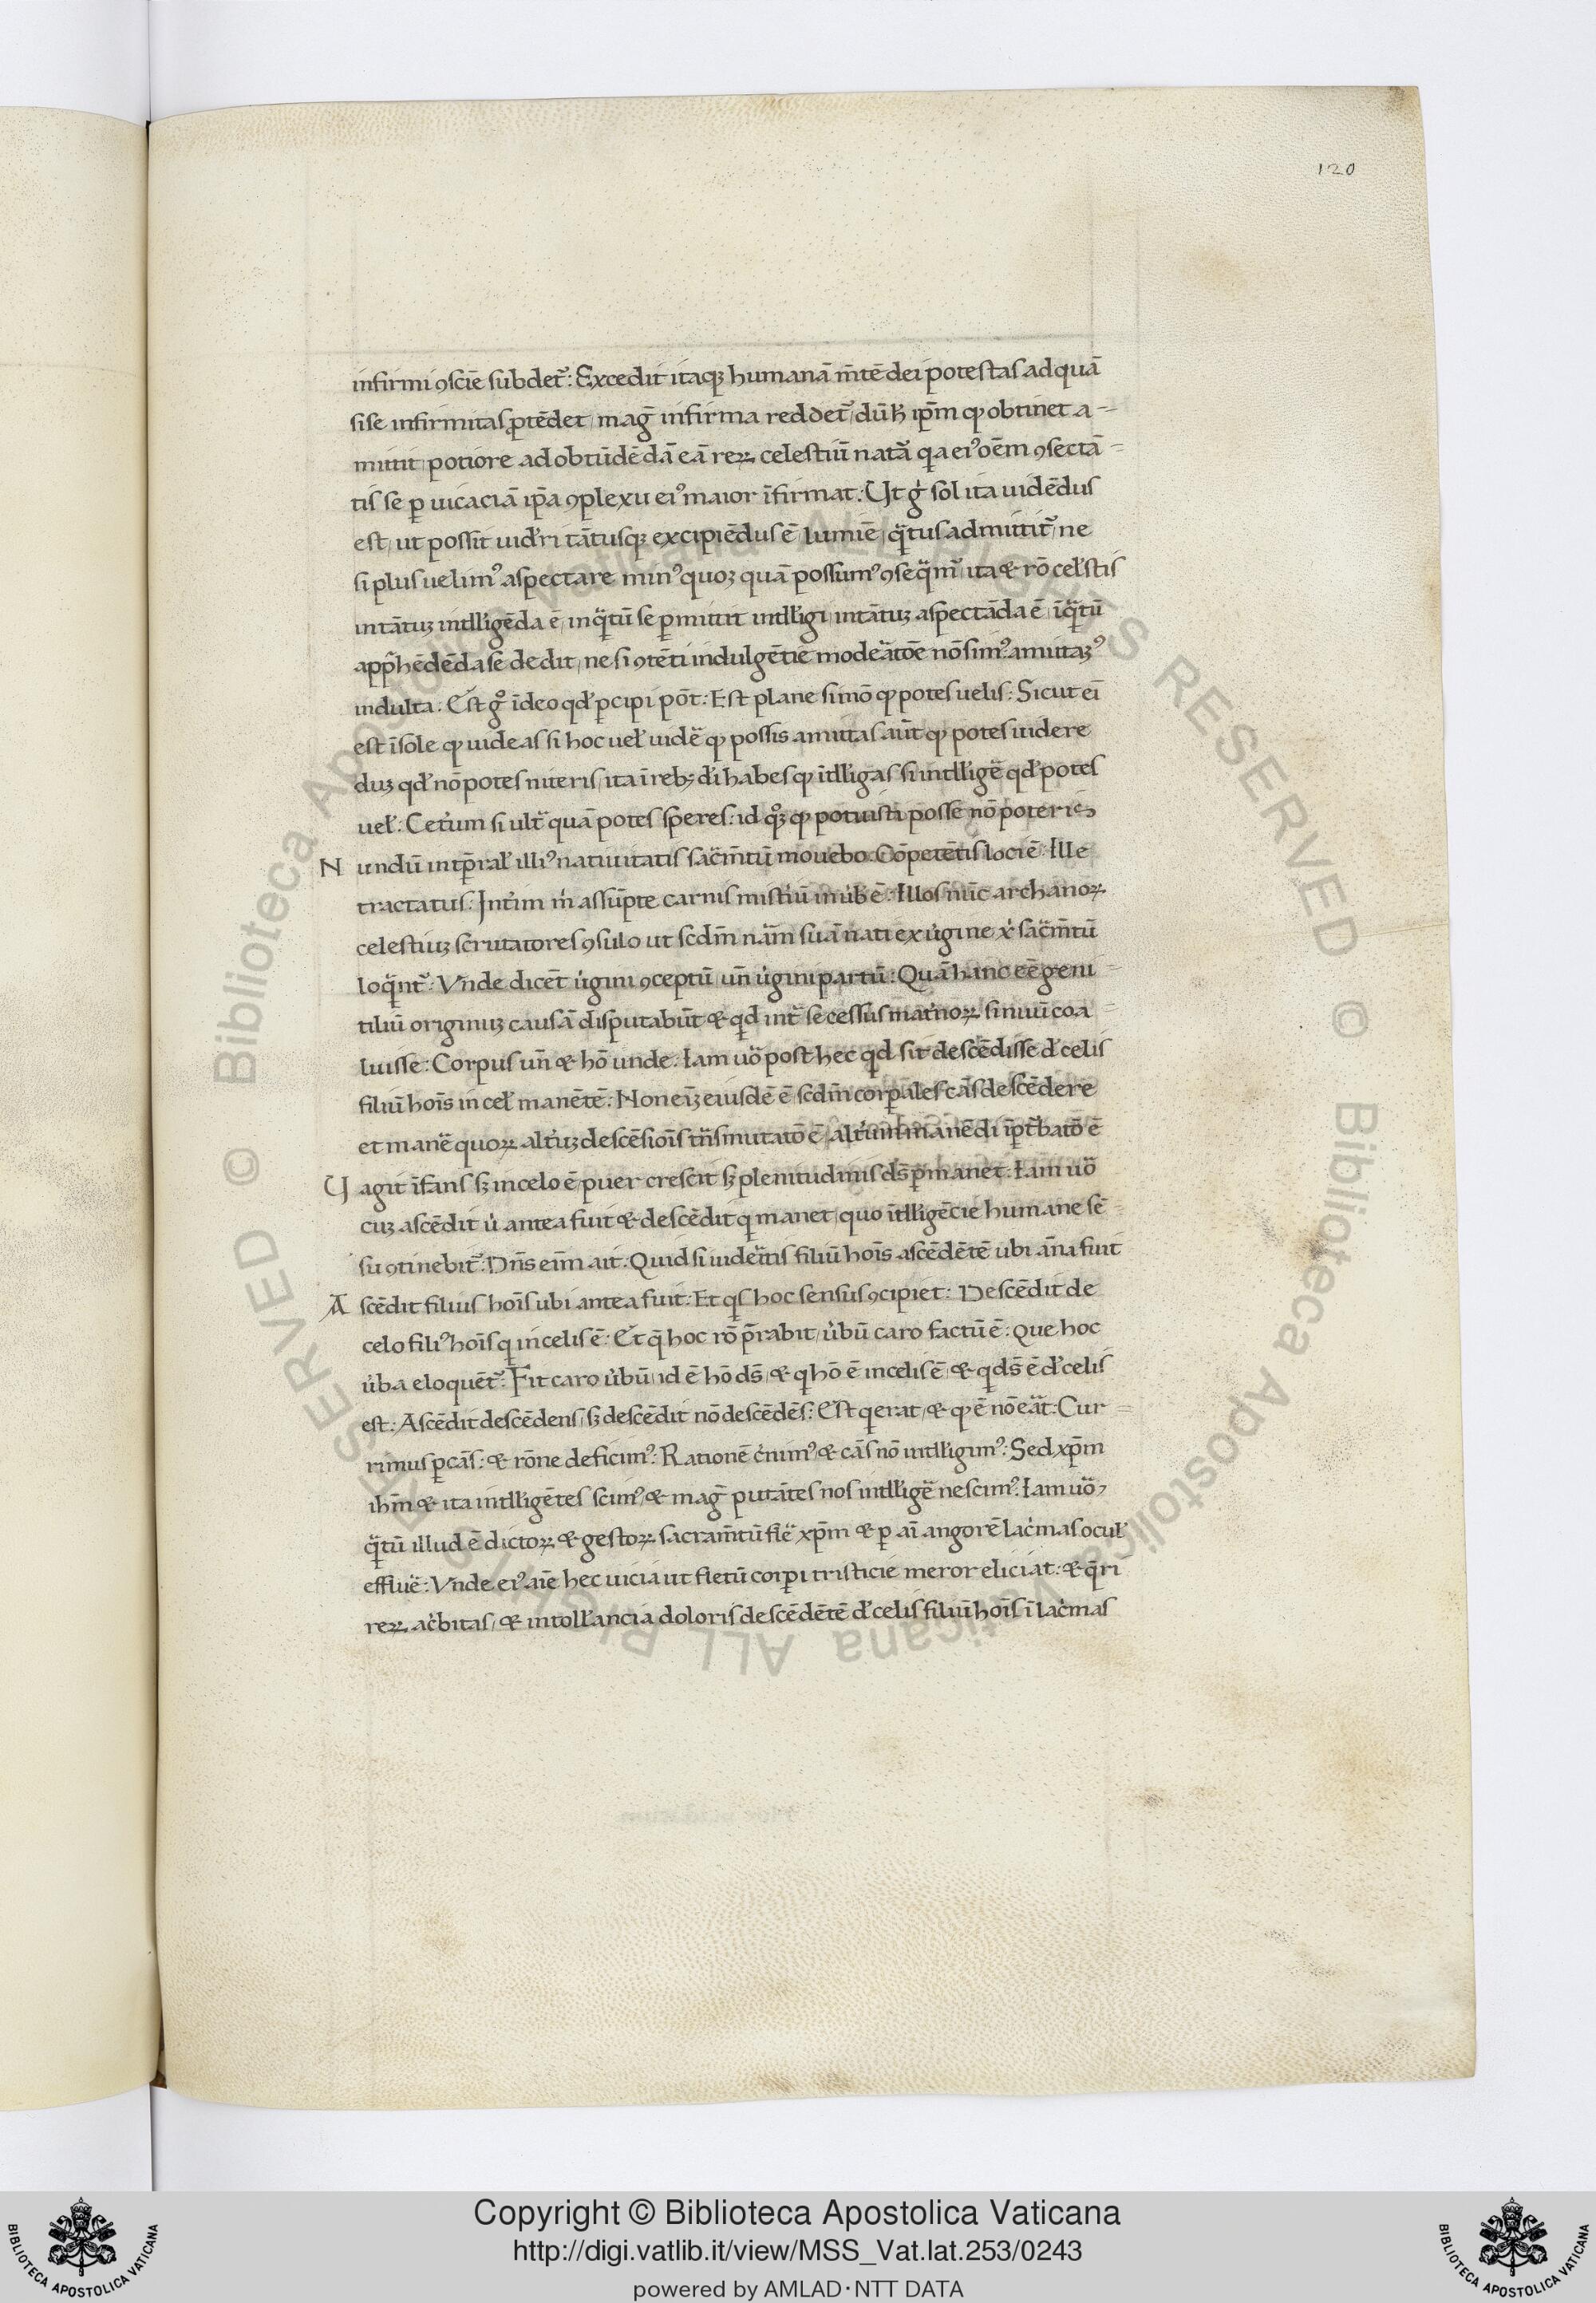 120
infirmi ꝯsciē subdet᷑: Excedit itaqꝫ humanā m̄tē dei potestas ad quā
si se infirmitas ꝓtēdet, mag̅ infirma reddet᷑, dū h̵ ip̄m ꝙ obtinet a-
mittit, potiore ad obtūdēdā eā reꝝ celestiū natā qa eiꝰ oēm ꝯsectā-
tis se ꝑuicaciā ip̄a ꝯplexu eiꝰ maior īfirmat: Ut gͥ sol ita uidēdus
est, ut possit uid'ri tātusqꝫ excipiēdus ē lumiē, qͣtus admittit᷑, ne
si plus uelimꝰ aspectare minꝰ quoꝫ quā possumꝰ ꝯseqͣmͬ, ita & rō cel'stis
intātuꝫ intll'igēda ē, inqͣtū se ꝑmittit intll'igi, intātuꝫ aspectāda ē, īqͣtū
app̄hēdēda se dedit, ne si ꝯtēti indulgētie modeͣtōe nō simꝰ, amittaꝫꝰ
indulta. Est gͦ īdeo qd' ꝑcipi pōt: Est plane si mō ꝙ potes uelis: Sicut eī
est ī sole ꝙ uideas si hoc uel' uideͤ ꝙ possis amittas aūt ꝙ potes uidere
duꝫ qd' nō potes niteris, ita ī rebꝫ d'i habes ꝙ ītll'igas si intll'igeͤ qd' potes
uel'. Cet'um si ultͣ quā potes speres: id qͦꝫ ꝙ potuisti posse nō poteris
N undū intꝑal' illiꝰ natiuitatis sac̄m̄tū mouebo. Cōpetētis loci ē Ille
tractatus: Int'im m͛ assūpte carnis mist'iū in u'b' ē: Illos nūc archanoꝝ
celestiuꝫ scrutatores ꝯsulo ut scdm̄ nām̄ suā nati ex u'gine xͥ sac̄m̄tū
loqͣntͬ: Vn̄de dicēt u'gini ꝯceptū, un̄ u'gini partū: Quā hanc eē geni-
tiliū originuꝫ causā disputabūt & qd intͣ secessus mat'noꝝ sinuū coa-
luisse: Corpus un̄ & hō unde. Iam uoͦ post hec qd' sit descēdisse d' celis
filiū hoīs in cel' manētē: Non eīꝫ eiusdē ē scdm̄ corꝑales cās descēdere
et maneͤ quoꝝ alt'uꝫ descēsiōis tn̄smutatō ē, alt'um manēdi īptͬbatō ē
U agit īfans sꝫ in celo ē, puer crescit sꝫ plenitudinis ds̄ ꝑmanet: Iam uoͦ
cuꝫ ascēdit uͥ antea fuit & descēdit q manet, quo ītll'igēcie humane sē-
su ꝯtinebit᷑: Dn̄s eīm ait: Quid si uideͥtis filiū hoīs ascēdētē ubi ān̄a fuit
A scēdit filius hoīs ubi antea fuit: Et qͥs hoc sensus ꝯcipiet: Descēdit de
celo filiꝰ hoīs q in celis ē: Et q̄ hoc rō p̄rabit, u'bū caro factū ē: que hoc
u'ba eloquēt᷑: Fit caro u'bū, id ē hō ds̄, & q hō ē in celis ē, & q ds̄ ē d' celis
est: Ascēdit descēdens, sꝫ descēdit nō descēdēs: Est q erat, & ꝙ ē nō eͣat: Cur-
rimus ꝑ cās: & rōne deficimꝰ: Rationē c'nimꝰ & cās nō intll'igimꝰ: Sed xp̄m
ih̄m & ita intll'igētes scimꝰ, & mag̅ putātes nos intll'igeͤ nescimꝰ. Iam uoͦ,
qͣtū illud ē dictoꝝ & gestoꝝ sacram̄tū fleͤ xp̄m & ꝑ aī angorē lac'mas ocul'
efflueͤ: Vnde eiꝰ aīe hec uicia ut fletū corꝑi tristicie meror eliciat: & q̄ri
reꝝ ac'bitas, & intoll'ancia doloris descēdētē d' celis filiū hoīs ī lac'mas
Copyright © Biblioteca Apostolica Vaticana
http://digi.vatlib.it/view/MSS_Vat.lat.253/0243
powered by AMLAD·NTT DATA